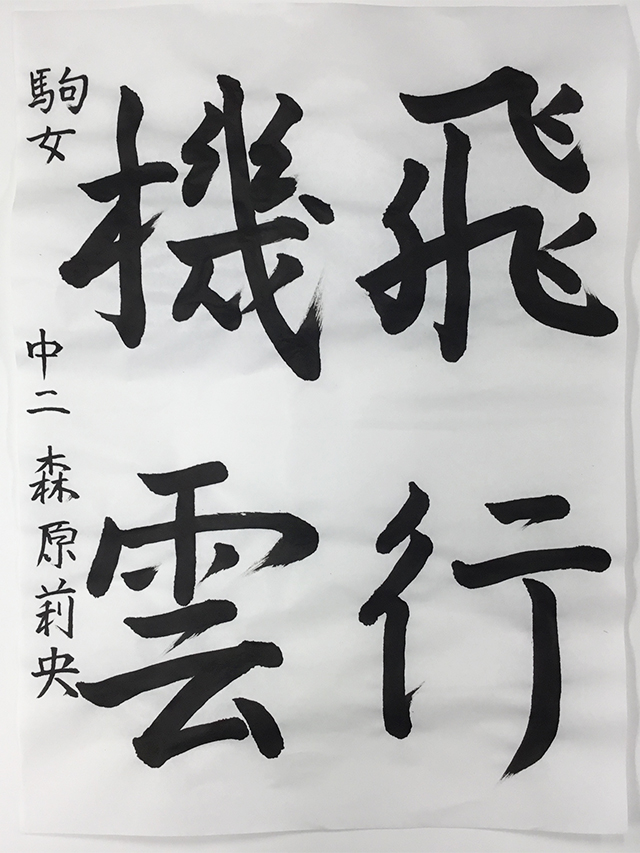 飛行
機雲
駒女 中二 森原莉央